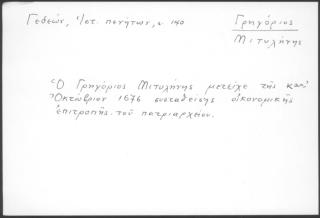 Γεδεών, Ἱστ. πενήτων, σ. 140
Γρηγόριος
Μιτυλήνης
Ὁ Γρηγόριος Μιτυλήνης μετεῖχε τῆς κατ'
Ὀκτώβριον 1676 συσταθείσης οἰκονομικῆς
ἐπιτροπῆς τοῦ πατριαρχείου.